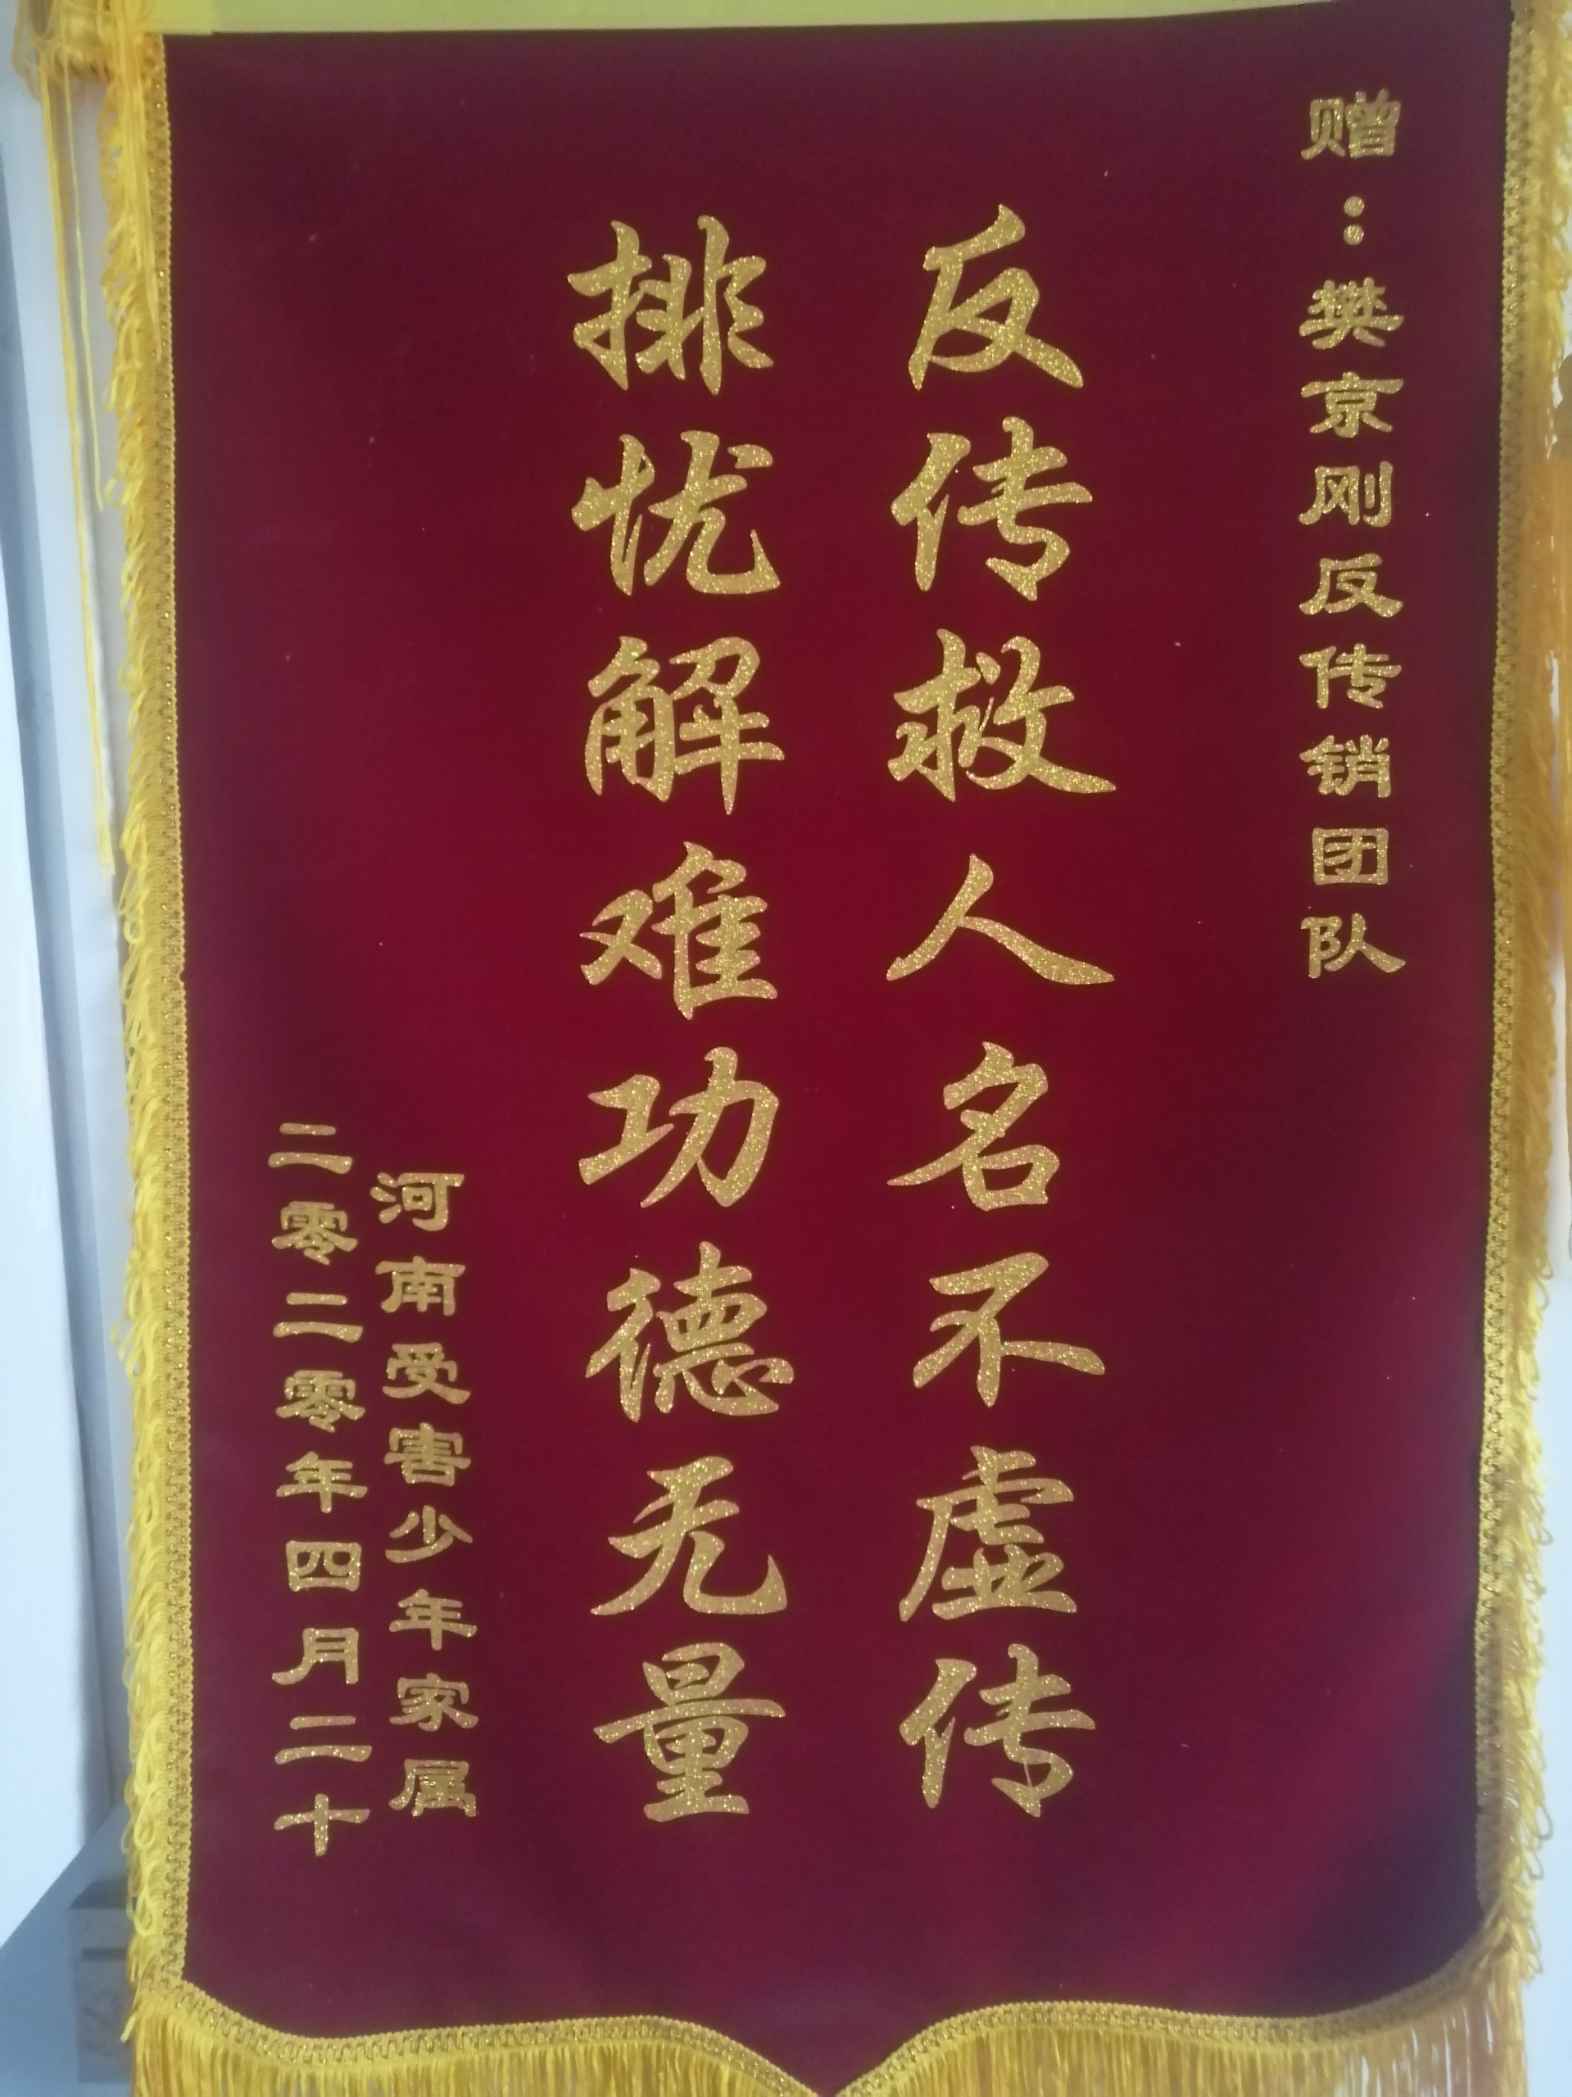 赠：樊京刚反传销团队
反传救人名不虚传
排忧解难功德无量
河南受害少年家属
二零二零年四月二十